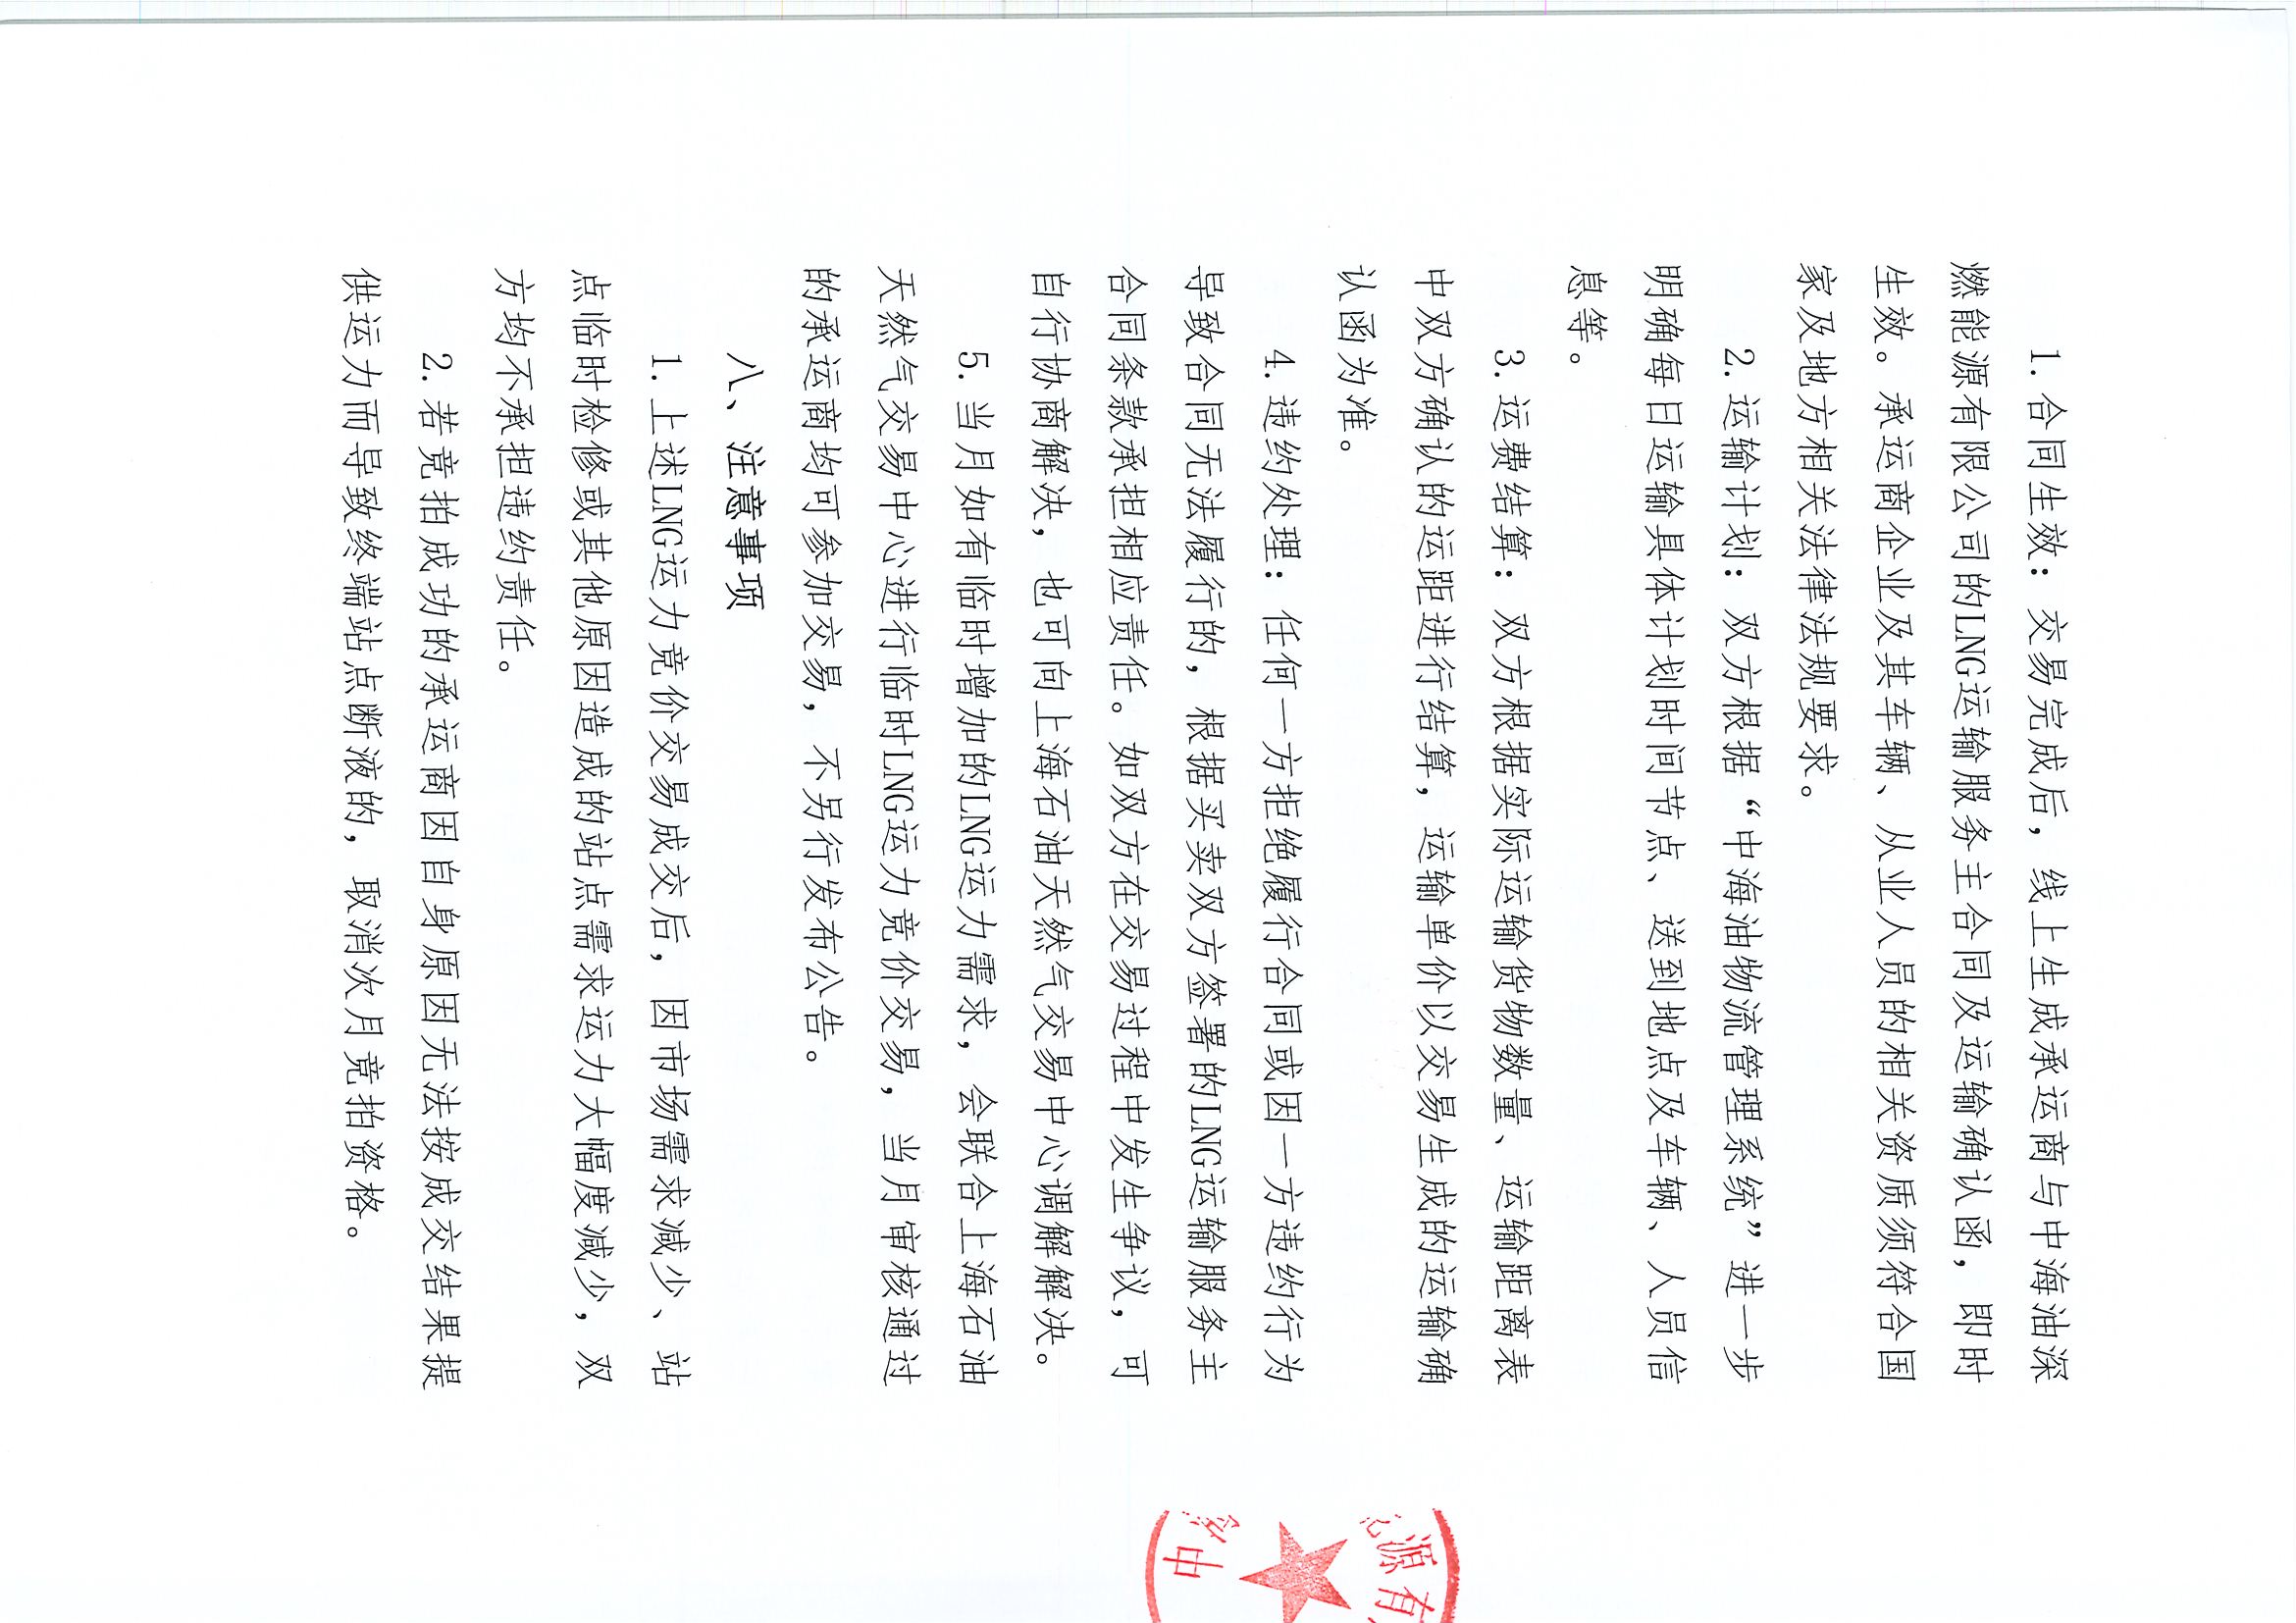 1.合同生效：交易完成后，线上生成承运商与中海油深
燃能源有限公司的LNG运输服务主合同及运输确认函，即时
生效。承运商企业及其车辆、从业人员的相关资质须符合国
家及地方相关法律法规要求。
2.运输计划：双方根据“中海油物流管理系统”进一步
明确每日运输具体计划时间节点、送到地点及车辆、人员信
息等。
3.运费结算：双方根据实际运输货物数量、运输距离表
中双方确认的运距进行结算，运输单价以交易生成的运输确
认函为准。
4.违约处理：任何一方拒绝履行合同或因一方违约行为
导致合同无法履行的，根据买卖双方签署的LNG运输服务主
合同条款承担相应责任。如双方在交易过程中发生争议，可
自行协商解决，也可向上海石油天然气交易中心调解解决。
5.当月如有临时增加的LNG运力需求，会联合上海石油
天然气交易中心进行临时LNG运力竞价交易，当月审核通过
的承运商均可参加交易，不另行发布公告。
八、注意事项
1.上述LNG运力竞价交易成交后，因市场需求减少、站
点临时检修或其他原因造成的站点需求运力大幅度减少，双
方均不承担违约责任。
2.若竞拍成功的承运商因自身原因无法按成交结果提
供运力而导致终端站点断液的，取消次月竞拍资格。
源有
中